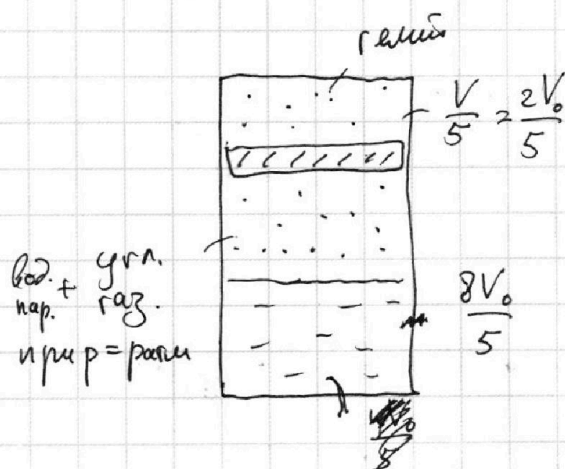 гелий
V/5 = 2V₀/5
вод. + угл.
пар. газ.
при p = pатм
8V₀/5